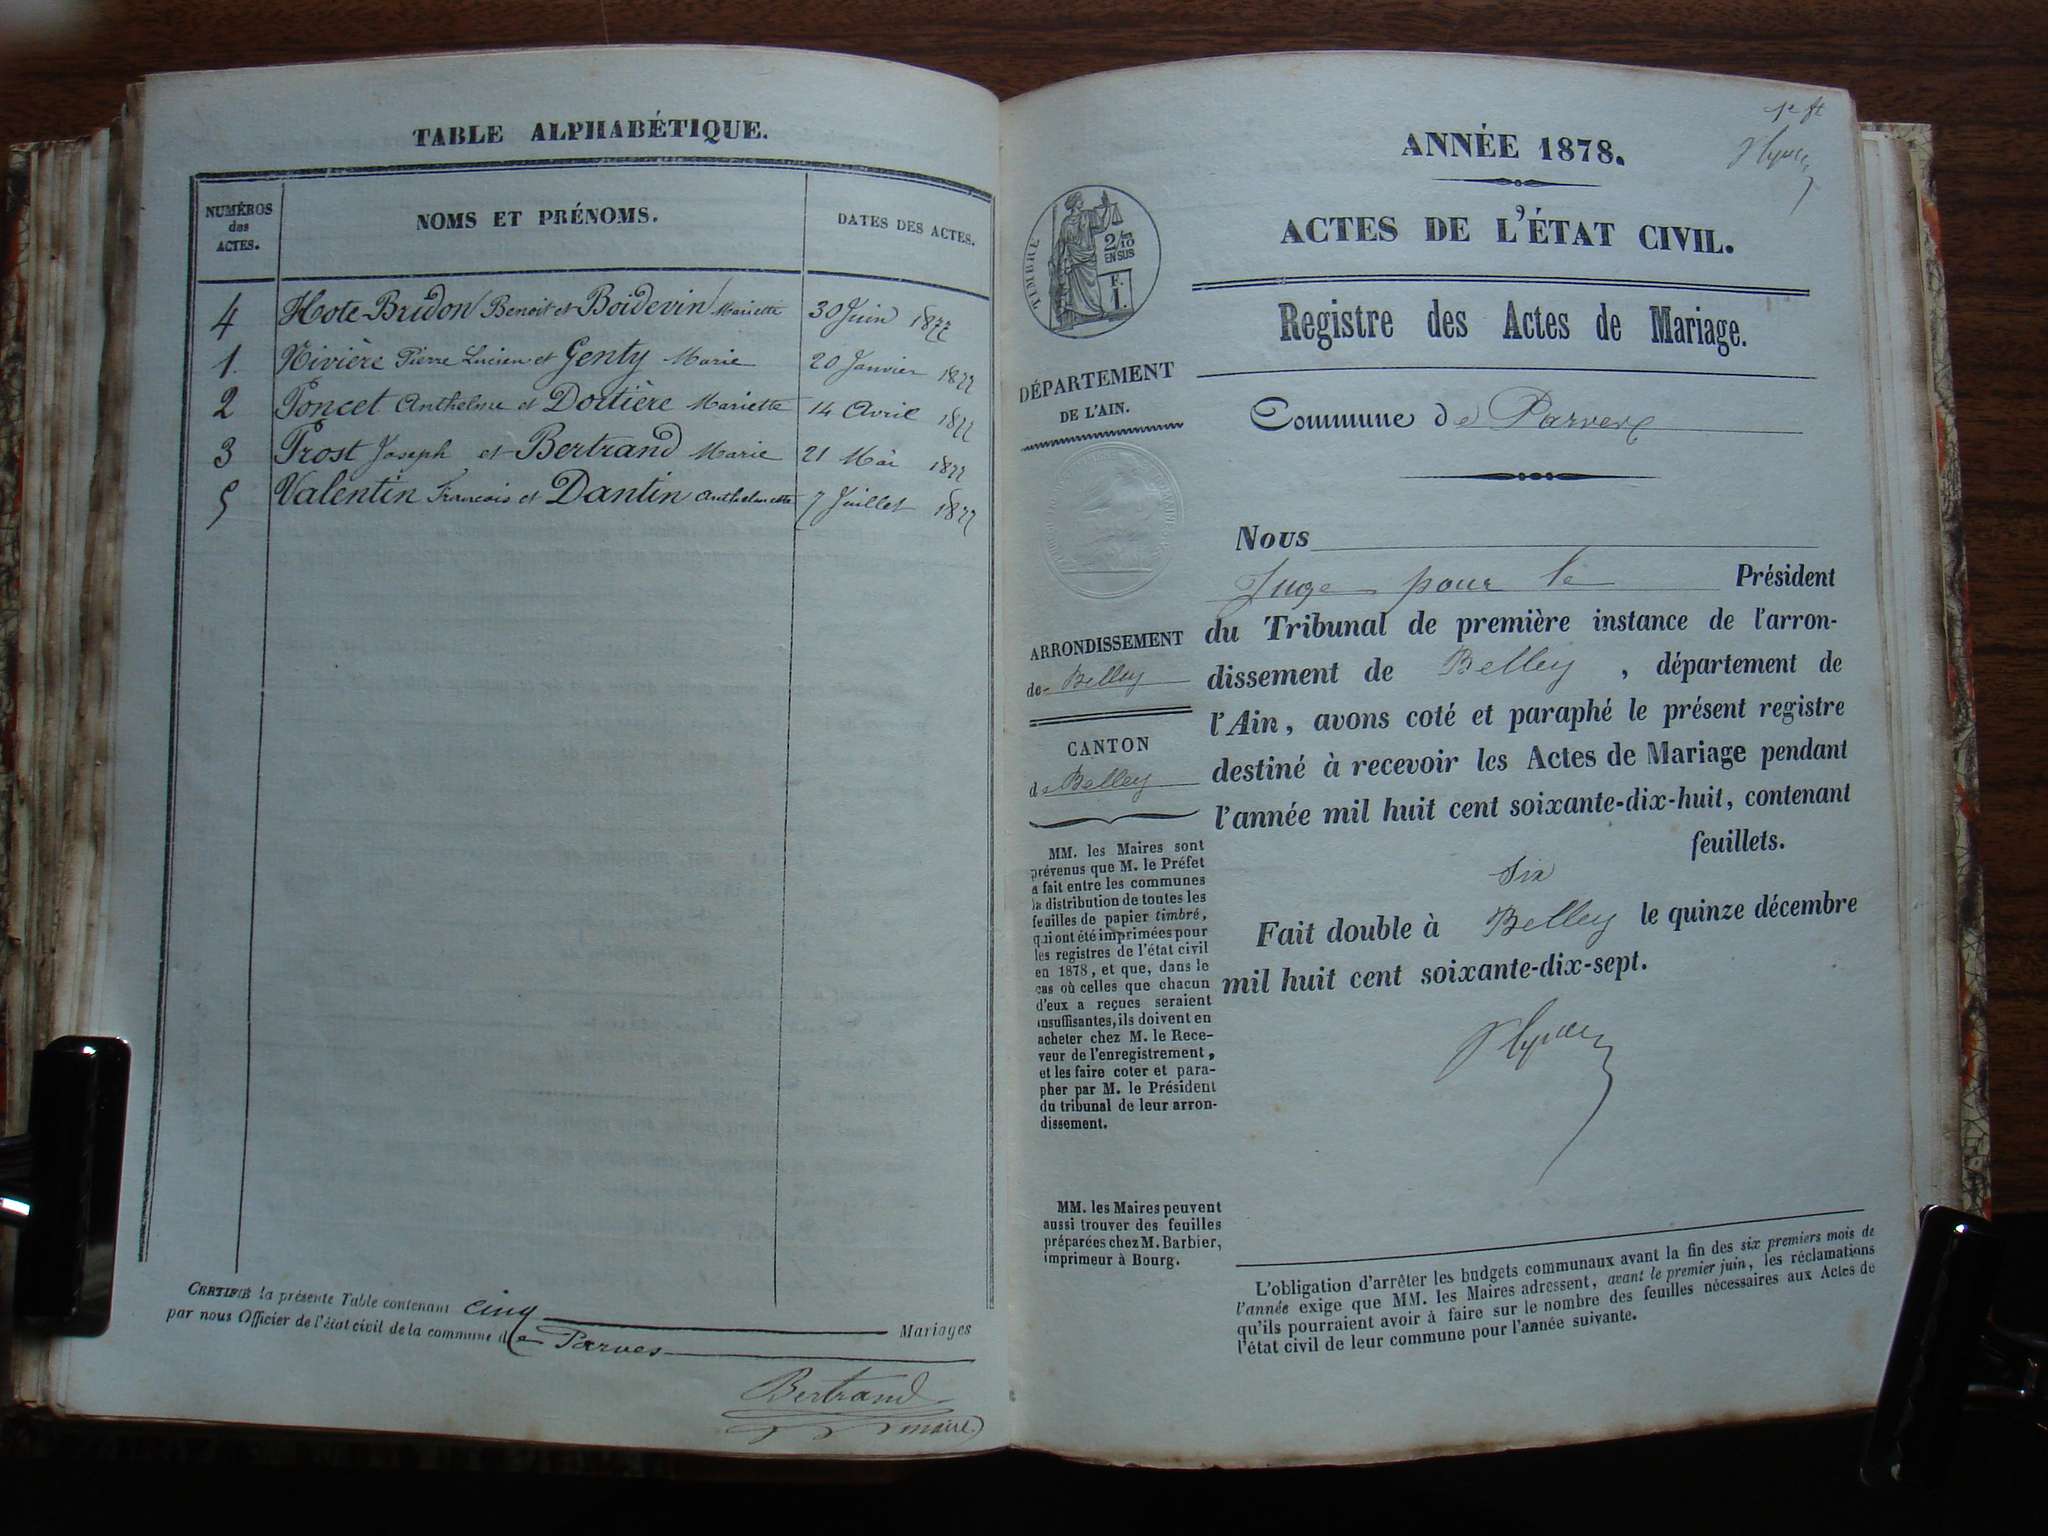 TABLE ALPHABÉTIQUE.
NUMÉROS des ACTES. NOMS ET PRÉNOMS. DATES DES ACTES.
4 Hote-Bridon Benoit et Boidevin Mariette 30 Juin 1877
1. Rivière Pierre Lucien et Genty Marie 20 Janvier 1877
2 Poncet Anthelme et Dortière Mariette 14 Avril 1877
3 Prost Joseph et Bertrand Marie 21 Mai 1877
5 Valentin François et Dantin Anthelmette 7 Juillet 1877
CERTIFIÉ la présente Table contenant cinq Mariages
par nous Officier de l'état civil de la commune de Parves
Bertrand
maire
1er ft
ANNÉE 1878.
ACTES DE L'ÉTAT CIVIL.
TIMBRE
2/10
EN SUS
F.
1.
Registre des Actes de Mariage.
DÉPARTEMENT
DE L'AIN.
Commune de Parves
Nous
Juge pour le Président
du Tribunal de première instance de l'arron-
dissement de Belley, département de
l'Ain, avons coté et paraphé le présent registre
destiné à recevoir les Actes de Mariage pendant
l'année mil huit cent soixante-dix-huit, contenant
six feuillets.
Fait double à Belley le quinze décembre
mil huit cent soixante-dix-sept.
ARRONDISSEMENT
de Belley
CANTON
de Belley
MM. les Maires sont
prévenus que M. le Préfet
a fait entre les communes
la distribution de toutes les
feuilles de papier timbré,
qui ont été imprimées pour
les registres de l'état civil
en 1878, et que, dans le
cas où celles que chacun
d'eux a reçues seraient
insuffisantes, ils doivent en
acheter chez M. le Rece-
veur de l'enregistrement,
et les faire coter et para-
pher par M. le Président
du tribunal de leur arron-
dissement.
MM. les Maires peuvent
aussi trouver des feuilles
préparées chez M. Barbier,
imprimeur à Bourg.
L'obligation d'arrêter les budgets communaux avant la fin des six premiers mois de
l'année exige que MM. les Maires adressent, avant le premier juin, les réclamations
qu'ils pourraient avoir à faire sur le nombre des feuilles nécessaires aux Actes de
l'état civil de leur commune pour l'année suivante.